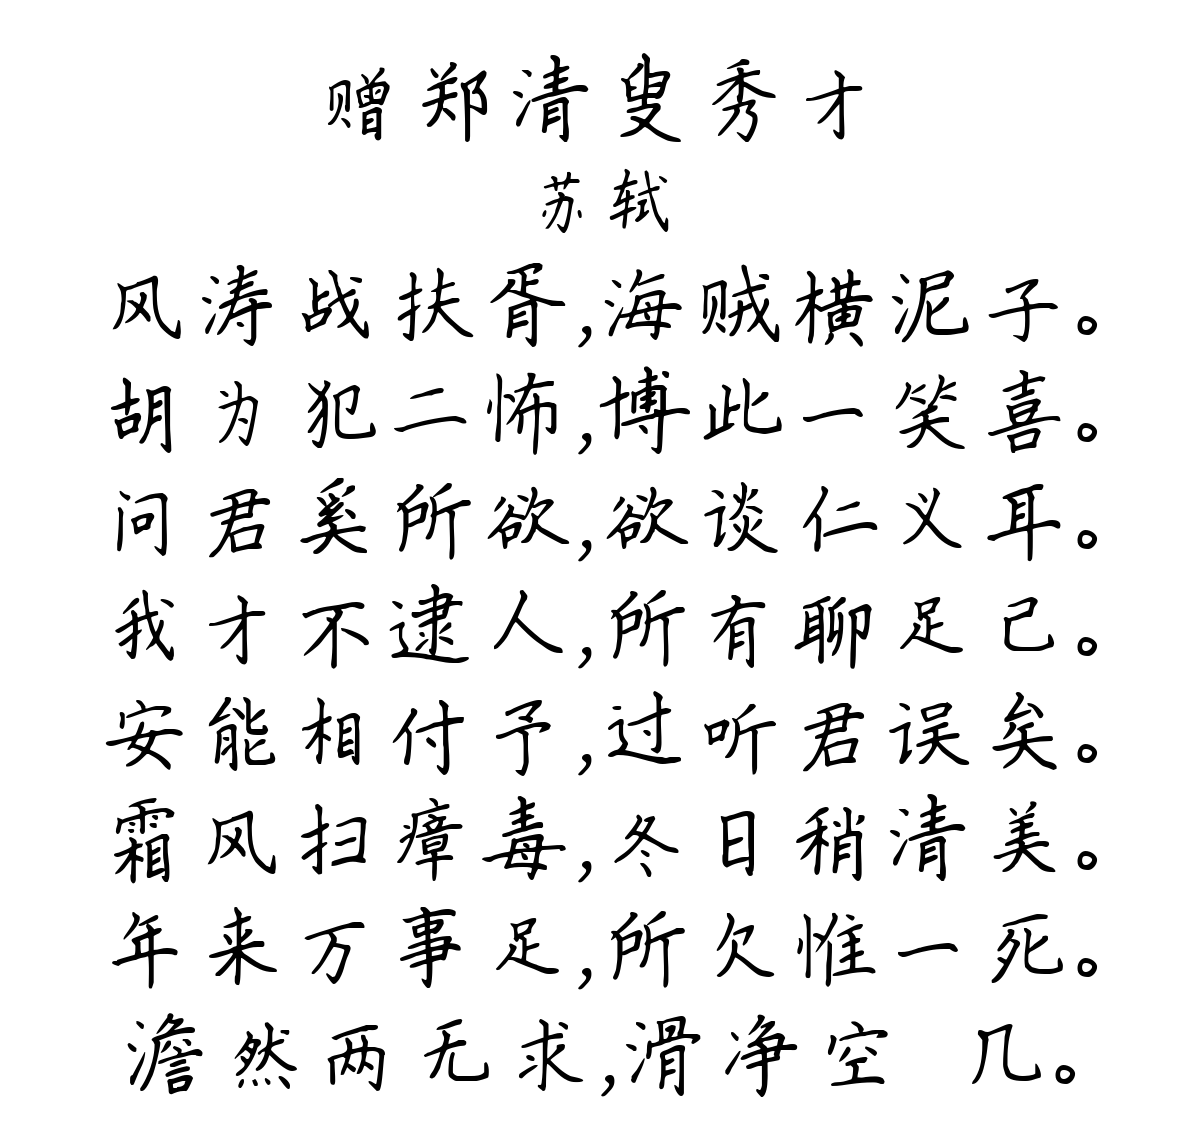 赠郑清叟秀才
苏轼
风涛战扶胥,海贼横泥子。
胡为犯二怖,博此一笑喜。
问君奚所欲,欲谈仁义耳。
我才不逮人,所有聊足己。
安能相付予,过听君误矣。
霜风扫瘴毒,冬日稍清美。
年来万事足,所欠惟一死。
澹然两无求,滑净空 几。